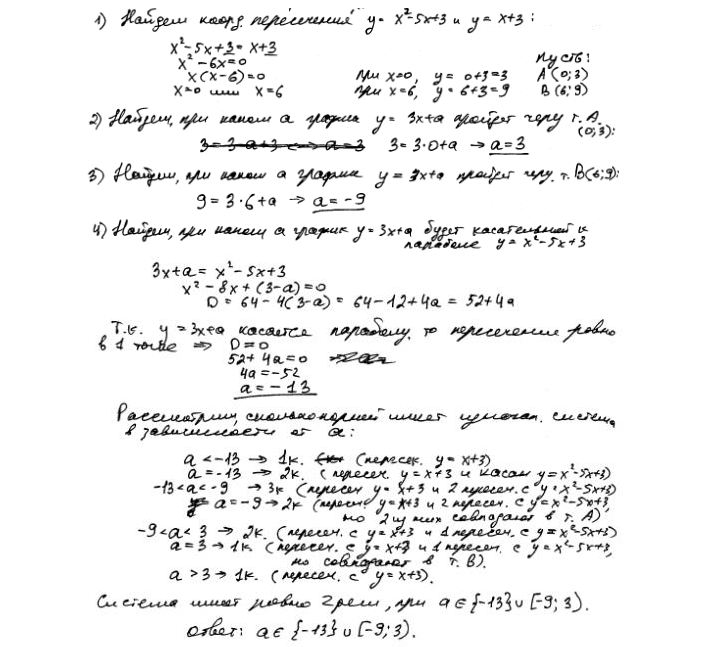 1) Найдем коорд. пересечения y = x²-5x+3 и y = x+3 :
x²-5x+3 = x+3
x²-6x=0
x(x-6)=0
x=0 или x=6
Пусть:
при x=0, y = 0+3=3 A (0;3)
при x=6, y = 6+3=9 B (6;9)
2) Найдем, при каком a график y = 3x+a пройдет через т. A.
(0;3):
3 = 3·0+a → a=3
3) Найдем, при каком a график y = 3x+a пройдет чер. т. B(6;9):
9 = 3·6+a → a = -9
4) Найдем, при каком a график y = 3x+a будет касательной к
параболе y = x²-5x+3
3x+a = x²-5x+3
x²-8x+(3-a)=0
D = 64-4(3-a) = 64-12+4a = 52+4a
Т.к. y = 3x+a касается параболу, то пересечение равно
в 1 точке ⇒ D=0
52+4a=0
4a=-52
a = -13
Рассмотрим, сколько корней имеет система
в зависимости от a:
a < -13 → 1к. (пересек. y = x+3)
a = -13 → 2к. (пересеч. y = x+3 и касан y = x²-5x+3)
-13<a<-9 → 3к (пересеч y = x+3 и 2 пересеч. с y = x²-5x+3)
a = -9 → 2к (пересеч. y = x+3 и 2 пересеч. с y = x²-5x+3,
но 2 из них совпадают в т. A)
-9<a<3 → 2к. (пересеч. с y = x+3 и 1 пересеч. с y = x²-5x+3)
a = 3 → 1к (пересеч. с y = x+3 и 1 пересеч. с y = x²-5x+3,
но совпадают в т. B).
a > 3 → 1к. (пересеч. с y = x+3).
Система имеет ровно 2 реш, при a ∈ {-13} ∪ [-9; 3).
Ответ: a ∈ {-13} ∪ [-9; 3).